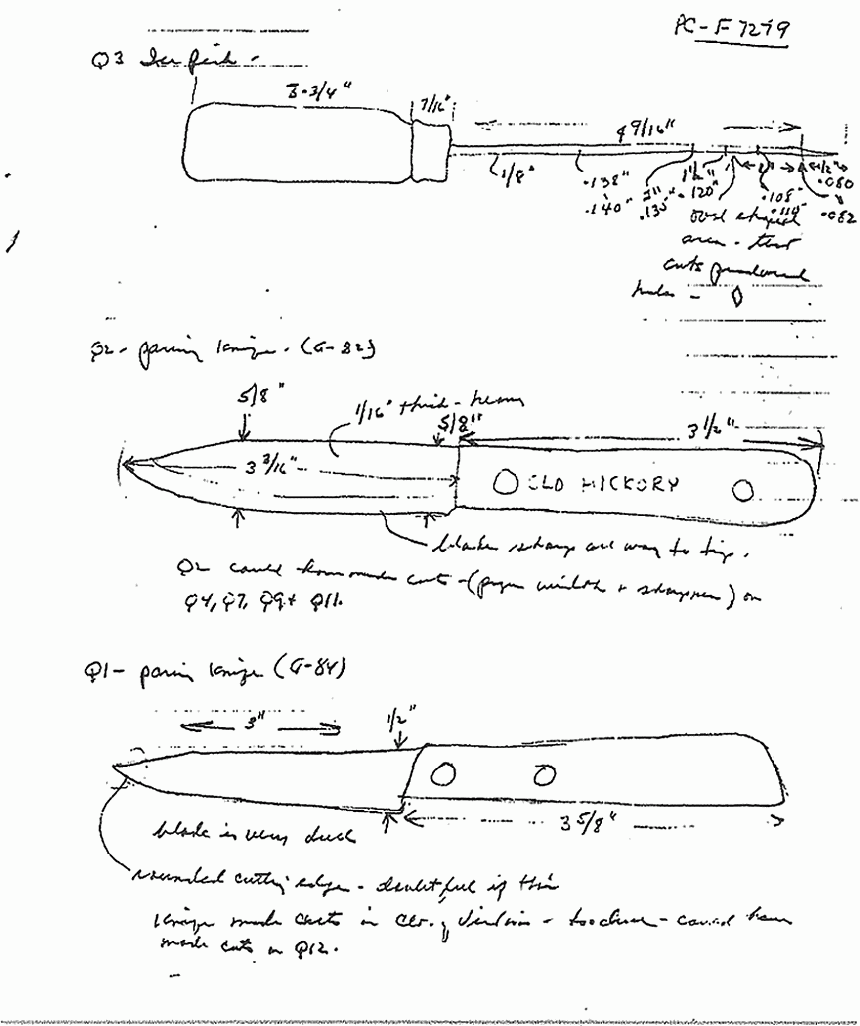 PC-F7279
Q3 Ice Pick -
3-3/4" 7/16"
4 9/16"
1/8" .138" 2" 1 1/2" 1" 1/2"
.140" .135" .120" .108" .080
.110" .082
oval shaped
area - test
cuts produced
holes -
Q2 - paring knife - (G-82)
5/8" 1/16" thick - heavy
5/8" 3 1/2"
3 3/16" OLD HICKORY
blade sharp all way to tip.
Q2 could have made cuts - (proper width + sharpness) on
Q4, Q7, Q9 + Q11.
Q1 - paring knife (G-84)
3" 1/2"
3 5/8"
blade is very dull
rounded cutting edge - doubtful if this
knife made cuts in clo. of victims - too dull - could have
made cuts in Q12.